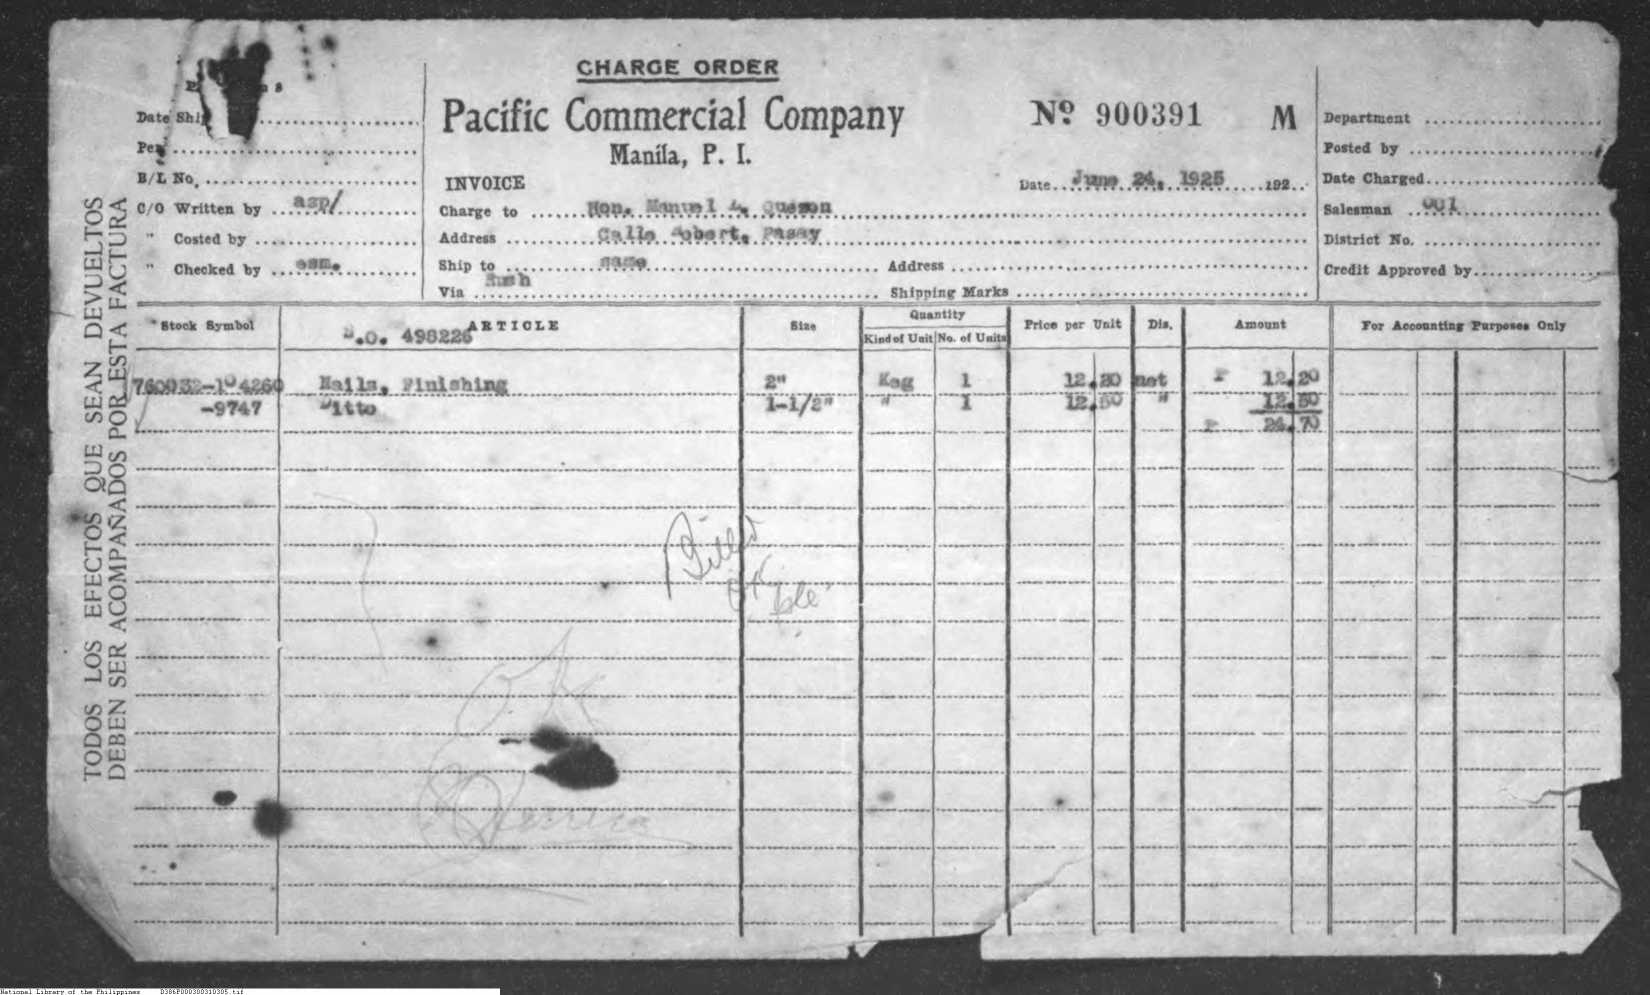 CHARGE ORDER
Pacific Commercial Company
Manila, P. I.
Nº 900391 M
INVOICE
Date June 24, 1925 192
Charge to Hon. Manuel L. Quezon
Address Calle Robert, Pasay
Ship to same Address
Via Rush Shipping Marks
Date
Per
B/L No.
C/O Written by asp/
" Costed by
" Checked by esm.
Department
Posted by
Date Charged
Salesman
District No.
Credit Approved by
TODOS LOS EFECTOS QUE SEAN DEVUELTOS
DEBEN SER ACOMPAÑADOS POR ESTA FACTURA
Stock Symbol ARTICLE Size Quantity Price per Unit Dis. Amount For Accounting Purposes Only
Kind of Unit No. of Units
D.O. 498226
Nails, Finishing 2" Keg 1 12.20 net P 12.20
-9747 Ditto 1-1/2" " 1 12.50 " 12.50
P 24.70
Billed
National Library of the Philippines D386P000300310305.tif